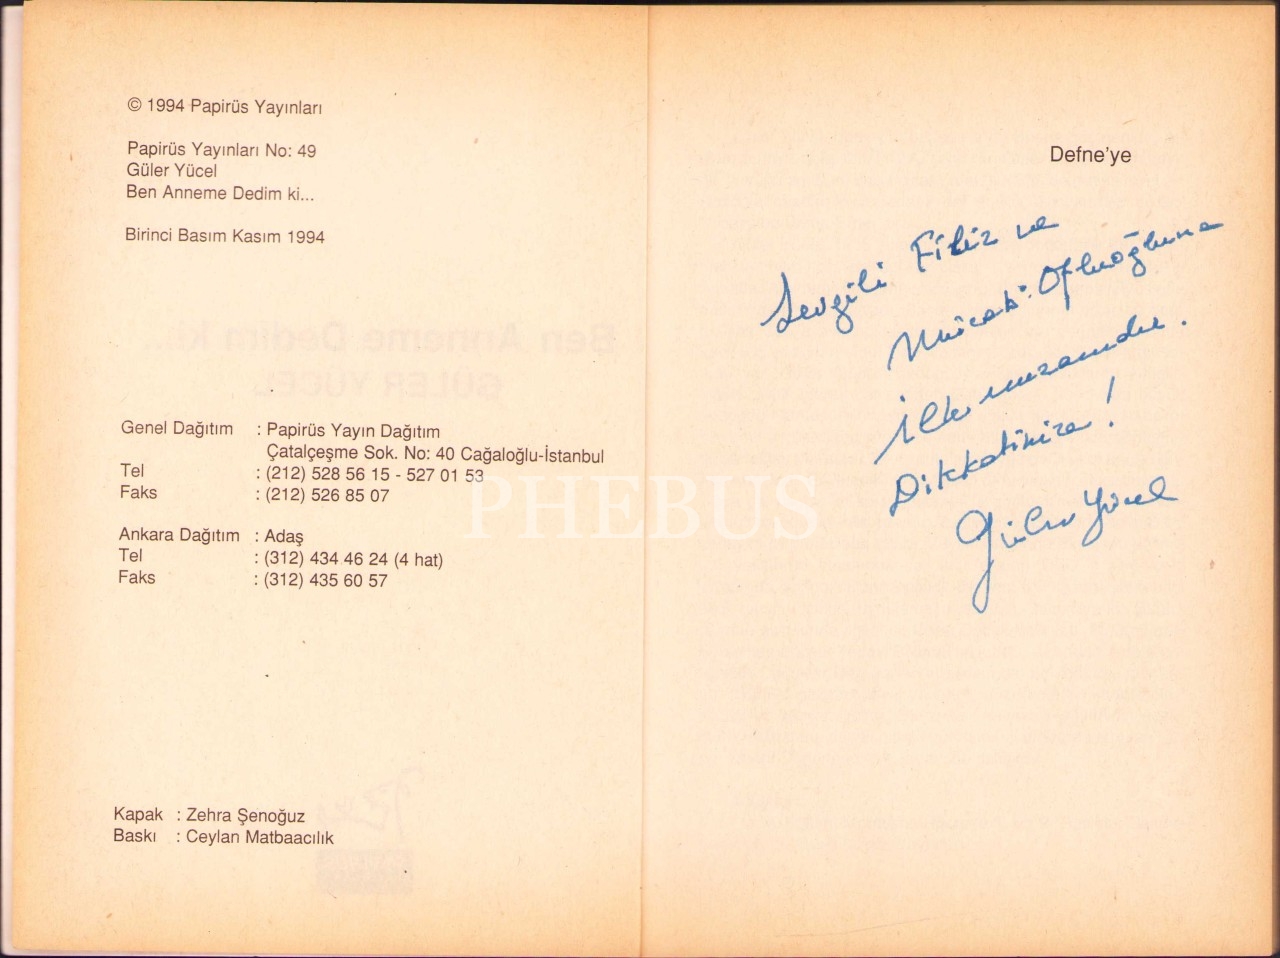 © 1994 Papirüs Yayınları
Papirüs Yayınları No: 49
Güler Yücel
Ben Anneme Dedim ki...
Birinci Basım Kasım 1994
Ben Anneme Dedim ki...
GÜLER YÜCEL
Genel Dağıtım : Papirüs Yayın Dağıtım
Çatalçeşme Sok. No: 40 Cağaloğlu-İstanbul
Tel : (212) 528 56 15 - 527 01 53
Faks : (212) 526 85 07
Ankara Dağıtım : Adaş
Tel : (312) 434 46 24 (4 hat)
Faks : (312) 435 60 57
Kapak : Zehra Şenoğuz
Baskı : Ceylan Matbaacılık
PHEBUS
Defne'ye
Sevgili Filiz ve
Mücab Ofluoğluna
İlk
Dikkatinize!
Güler Yücel